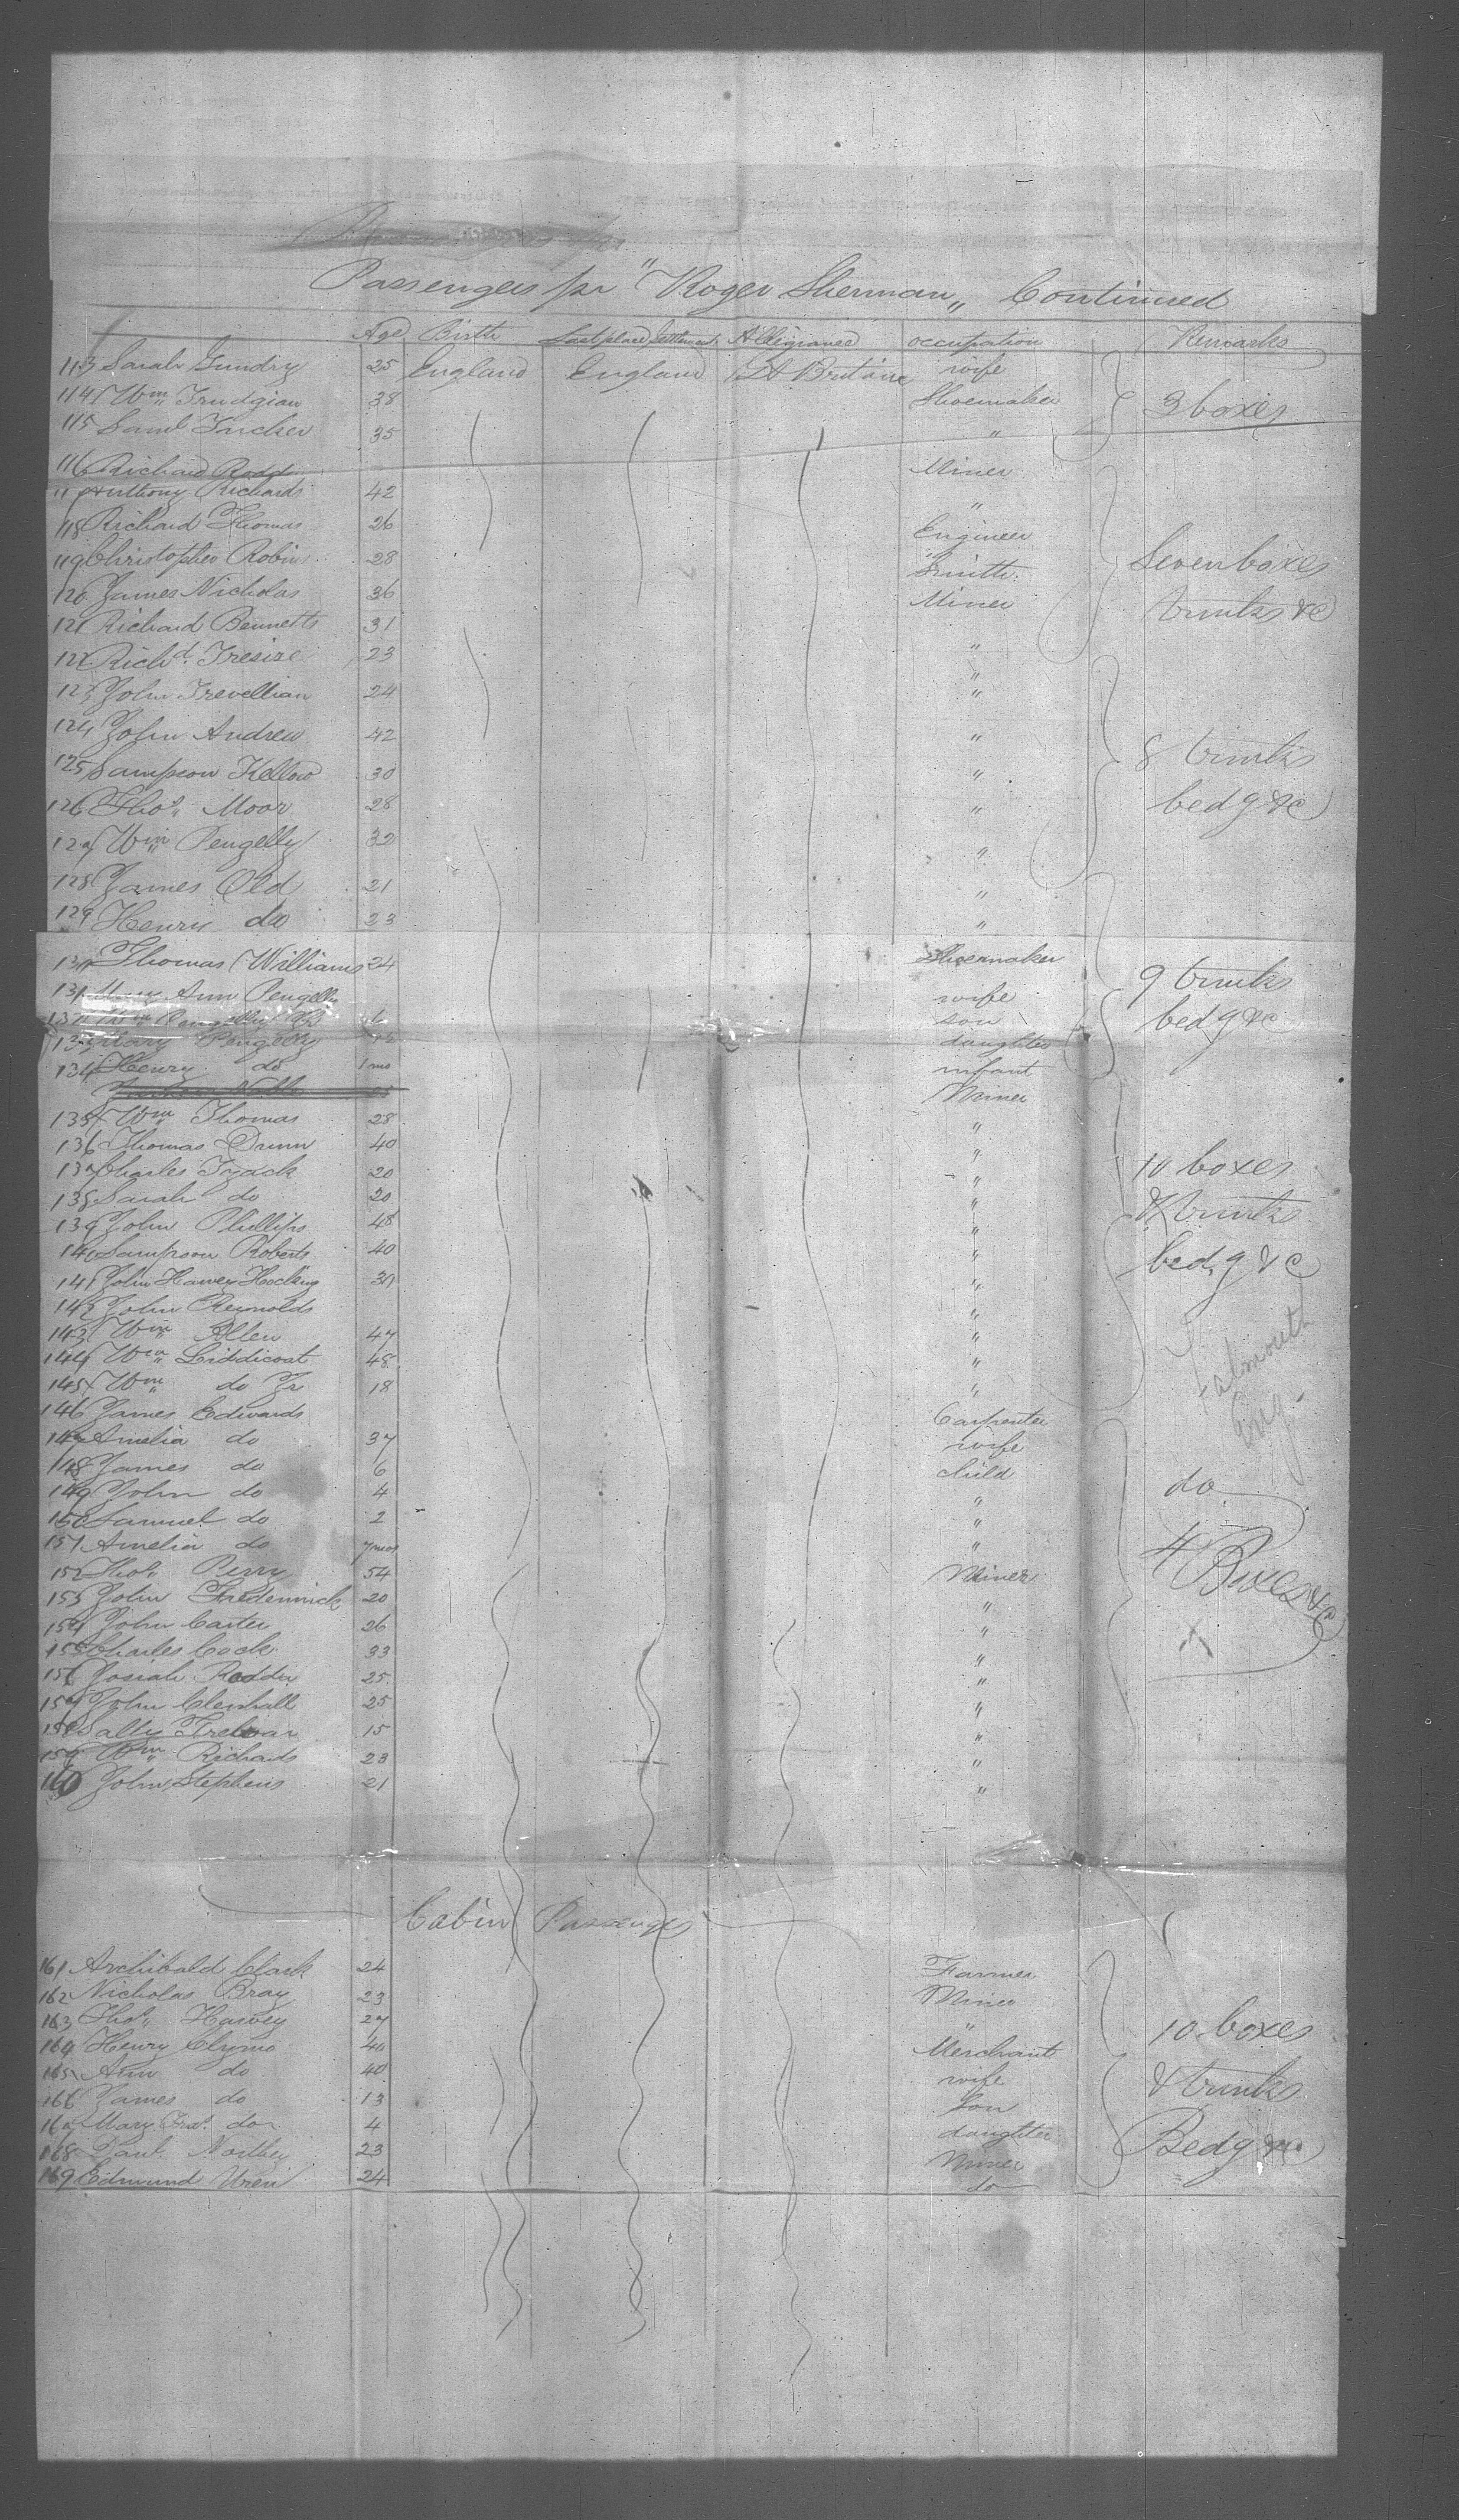 Passengers pr "Roger Sherman" Continued
Age Birth Last place Settlement Allegiance occupation Remarks
113 Sarah Gundry 25 England England Gt Britain wife
114 Wm Trudgian 38 Shoemaker 3 boxes
115 Saml Tucker 35 "
116 Richard Rodd Miner
117 Anthony Richards 42 "
118 Richard Thomas 26 Engineer
119 Christopher Robins 28 Smith Seven boxes
120 James Nicholas 36 Miner trunks &c
121 Richard Bennetts 31 "
122 Richd Tresize 23 "
123 John Trevellian 24 "
124 John Andrew 42 " 8 trunks
125 Sampson Kellow 30 "
126 Thos Moor 28 " bedg &c
127 Wm Pengelly 32 "
128 James Old 21 "
129 Henry do 23 "
130 Thomas Williams 24 Shoemaker 9 trunks
131 Mary Ann Pengelly wife
132 Wm Pengelly 6 son bedg &c
133 Mary Pengelly daughter
134 Henry do 1 mo infant
Miner
135 Wm Thomas 28 "
136 Thomas Dunn 40 "
137 Charles Tyack 20 " 10 boxes
138 Sarah do 20 "
139 John Phillips 48 " & trunks
140 Sampson Roberts 40 "
141 John Harvey Hocking 30 " bedg &c
142 John Reynolds "
143 Wm Allen 47 "
144 Wm Liddicoat 48 " Falmouth
145 Wm do Jr 18 " Eng.
146 James Edwards Carpenter
147 Amelia do 37 wife
148 James do 6 child
149 John do 4 " do
150 Samuel do 2 "
151 Amelia do 7 mos "
152 Thos Perry 54 Miner 4 Boxes &c
153 John Fredennick 20 "
154 John Carter 26 "
155 Charles Cock 33 "
156 Josiah Roddin 25 "
157 John Clenhall 25 "
158 Sally Treloar 15 "
159 Wm Richards 23 "
160 John Stephens 21 "
Cabin Passengers
161 Archibald Clark 24 Farmer
162 Nicholas Bray 23 Miner
163 Thos Harvey 27 " 10 boxes
164 Henry Clymo 40 Merchant
165 Ann do 40 wife & trunks
166 James do 13 Son
167 Mary do 4 daughter
168 Northey 23 Miner Bedg &c
169 Edmund Uren 24 do